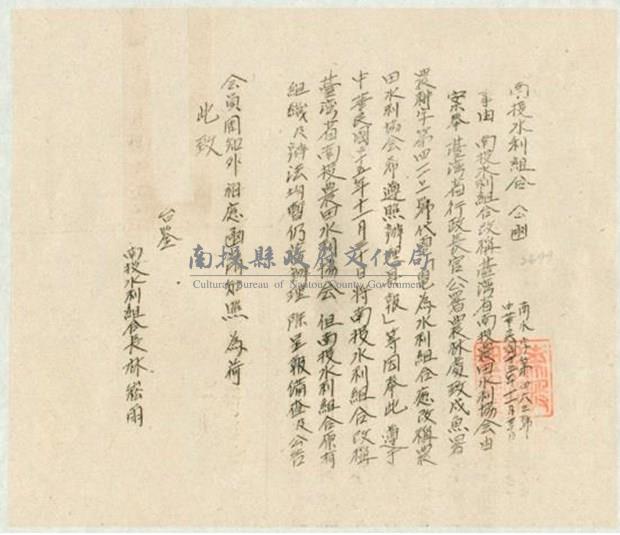 南投水利組合 公函
南水字第四六二號
中華民國三十五年十一月 日
事由 南投水利組合改稱臺灣省南投農田水利協會由
案奉 臺灣省行政長官公署農林處致戌魚署
農耕字第四一二號代電 電為水利組合應改稱農
田水利協會希遵照辦理具報」等因奉此 遵于
中華民國卅五年十一月 日將南投水利組合改稱
臺灣省南投農田水利協會 但南投水利組合原有
組織及辦法均暫仍舊辦理 除呈報備查及公告
會員周知外相應函 查照 為荷
此致
台鑒
南投水利組合長 林
南投縣政府文化局
Cultural Bureau of Nantou County Government